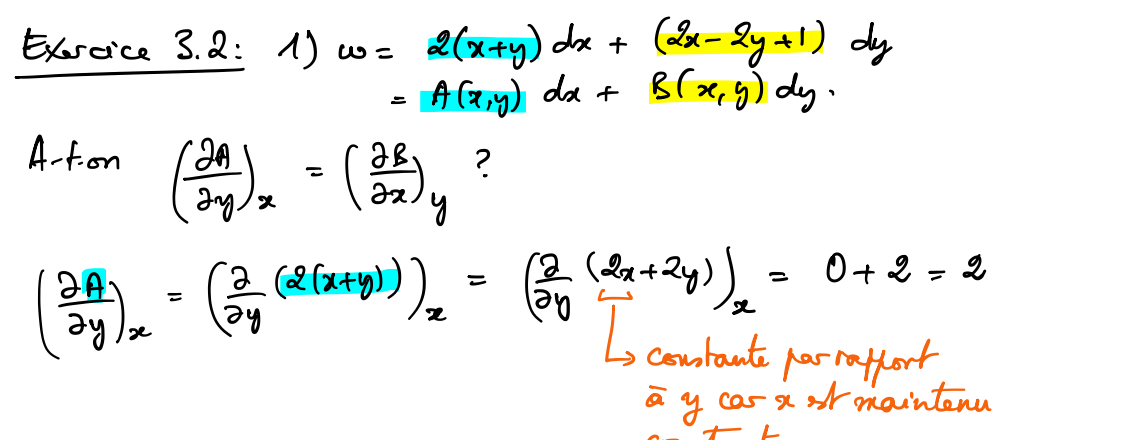 Exercice 3.2: 1) ω = 2(x+y) dx + (2x-2y+1) dy
= A(x,y) dx + B(x,y) dy.
A-t-on (∂A/∂y)_x = (∂B/∂x)_y ?
(∂A/∂y)_x = (∂/∂y (2(x+y)))_x = (∂/∂y (2x+2y))_x = 0+2 = 2
↳ constante par rapport
à y car x est maintenu